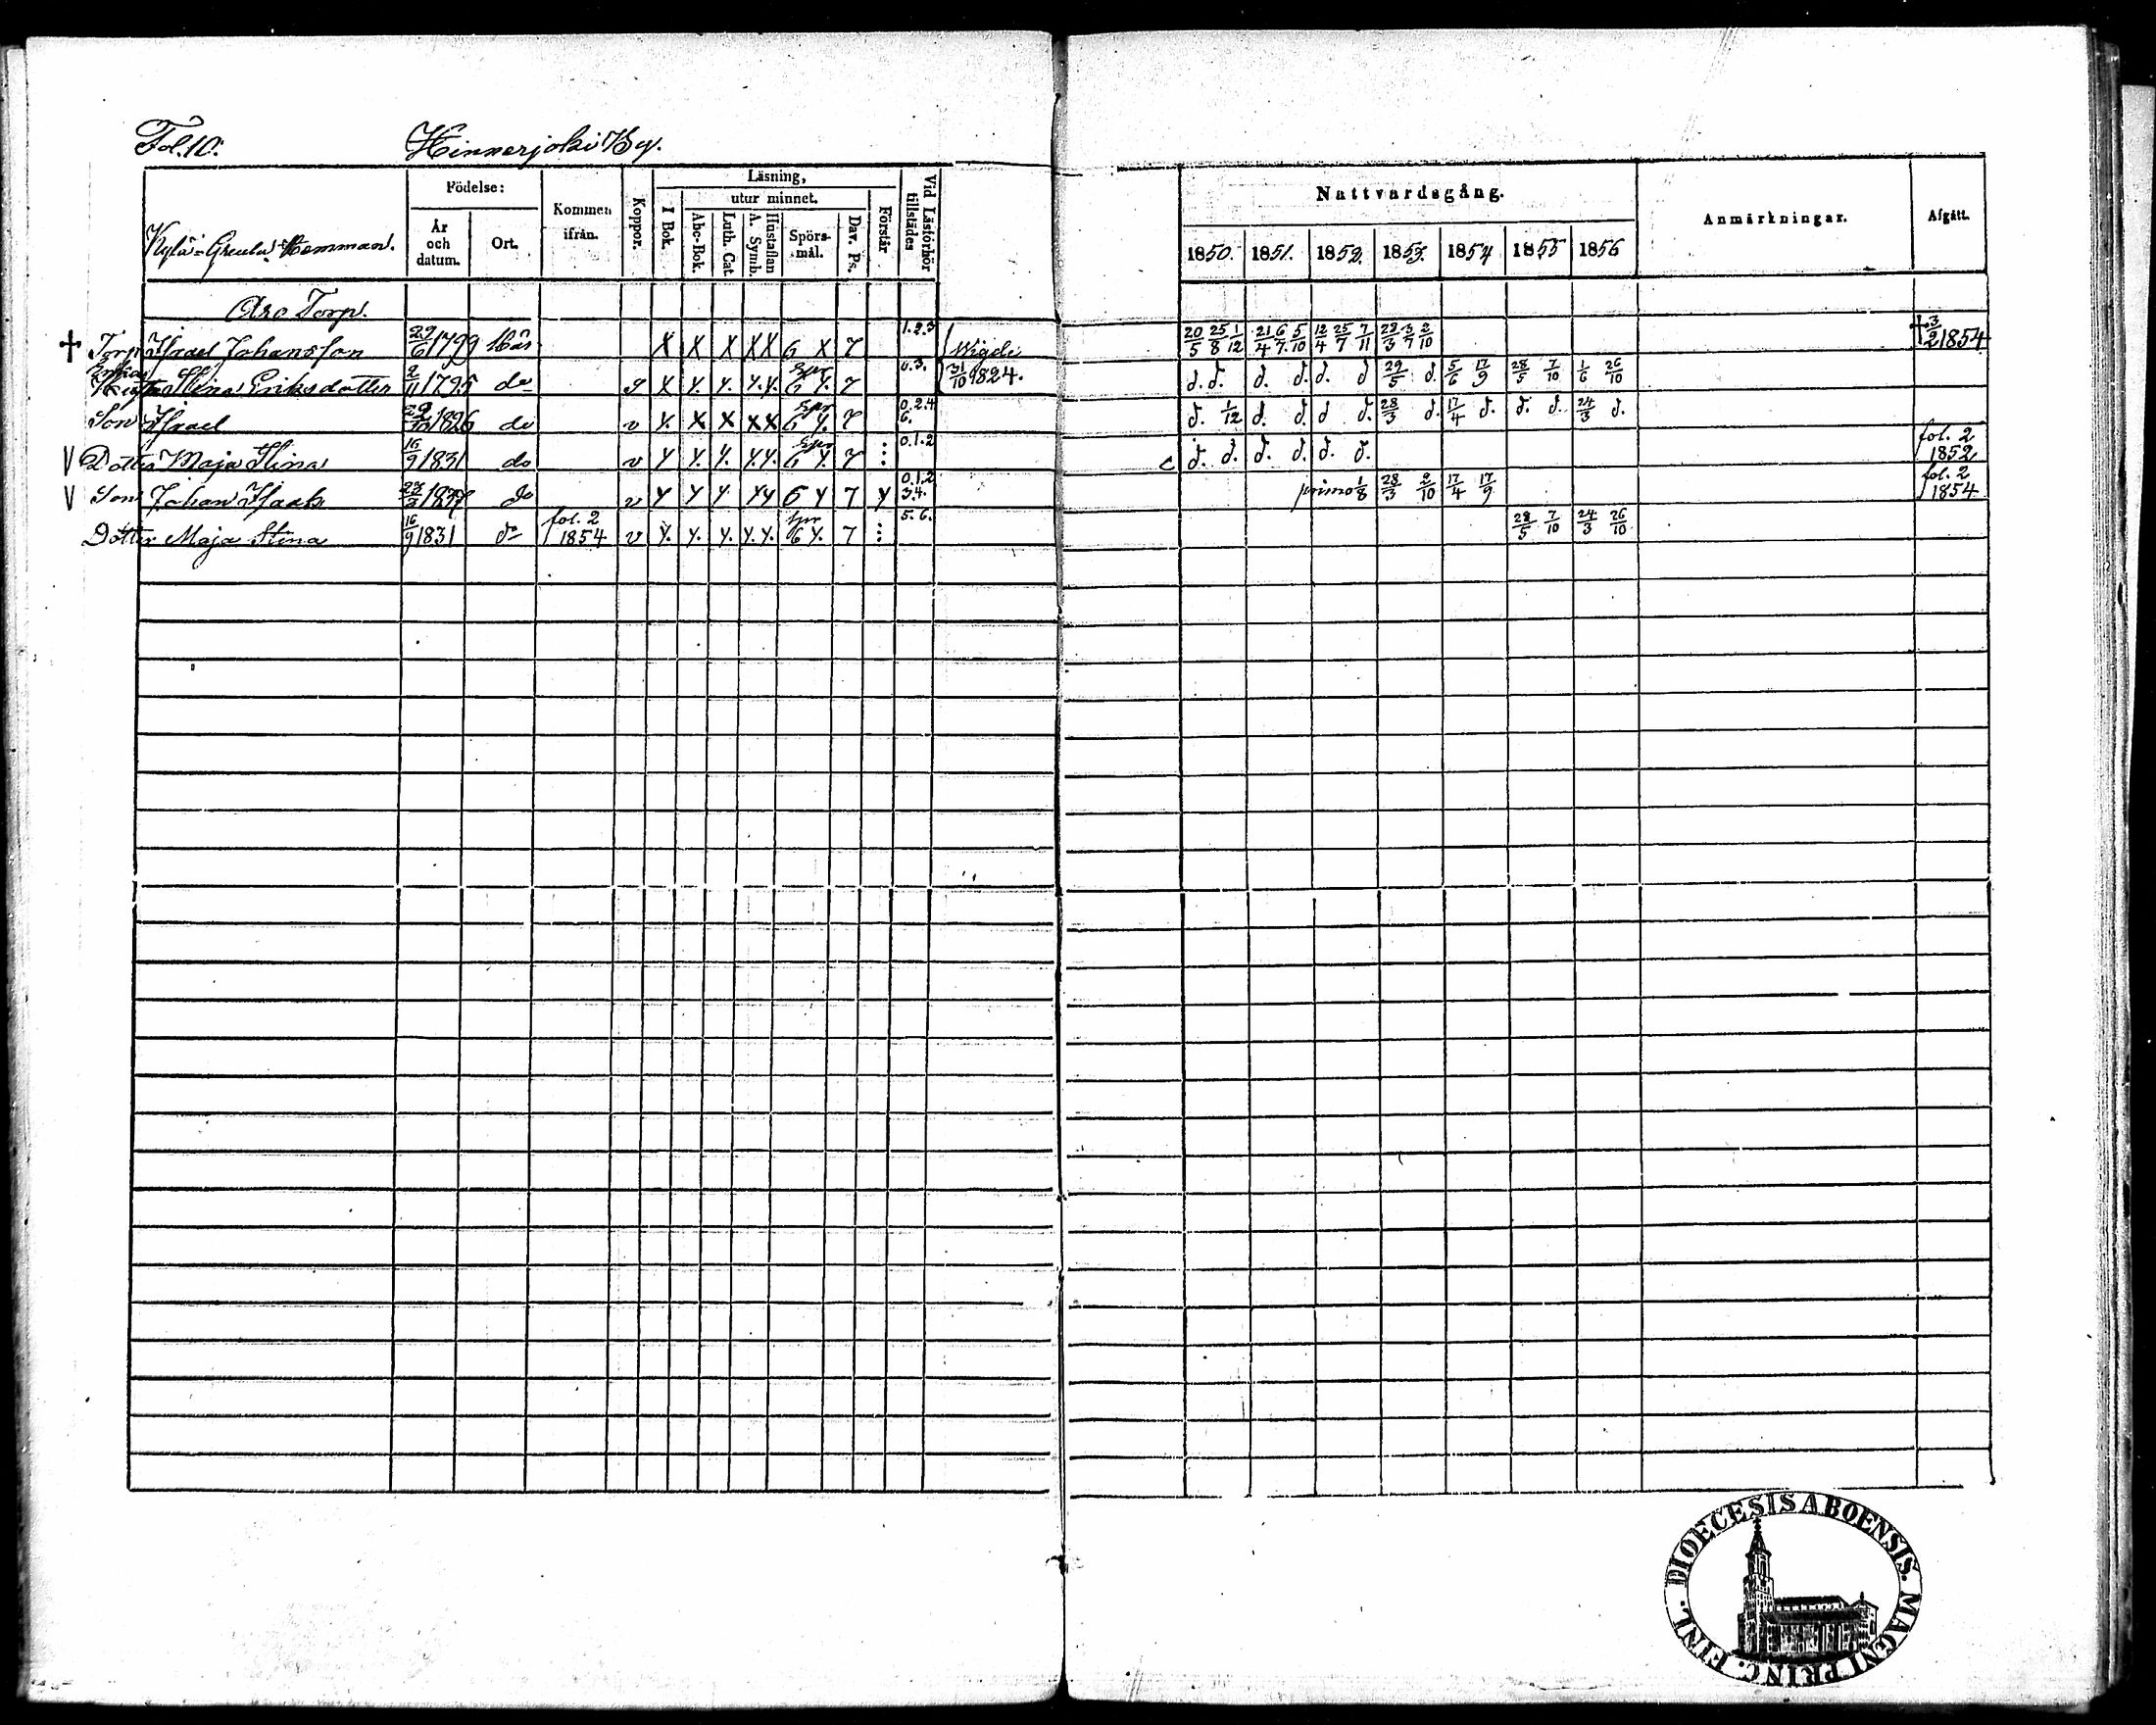 Fol. 10. Hinnerjoki By.
Kylä-Greula Hemman. Födelse: År och datum. Ort. Kommen ifrån. Koppor. Läsning, I Bok. utur minnet. Abc-Bok. Luth. Cat. A. Symb. Hustaflan Spörs-mål. Dav. Ps. Förstår Vid Läsförhör tillstädes Nattvardsgång. 1850. 1851. 1852. 1853. 1854 1855 1856 Anmärkningar. Afgått.
Aro Torp.
† Torp. Israel Johansson 29/6 1799 här X X X X X 6 X 7 1.2.3 Wigde 20/5 25/8 1/12 21/4 6/7 5/10 12/4 25/7 7/11 28/3 3/7 2/10 † 3/2 1854
Enkan Stina Eriksdotter 2/11 1795 do X y. y. y. y. 6 y. 7 0.3. 31/10 1824. d. d. d. d. d. d 29/5 d. 5/6 17/9 28/5 7/10 1/6 26/10
Son Israel 29/10 1826 do v y. X X X X 6 y. 7 0.2.4 6. d. 1/12 d. d. d d. 28/3 d. 17/4 d. d. d. 24/3 d.
V Dotter Maja Stina 16/9 1831 do v y y. y. y. y. 6 y. 7 0.1.2 c d. d. d. d. d. d. fol. 2 1852
V Son Johan Isaak do v y y y y y 6 y 7 y 0.1.2 3.4. primo 1/8 28/3 2/10 17/4 17/9 fol. 2 1854
Dotter Maja Stina 16/9 1831 do fol. 2 1854 v y. y. y. y. y. 6 y. 7 5.6. 28/5 7/10 24/3 26/10
DIOECESIS ABOENSIS. MAGNI PRINC. FINL.